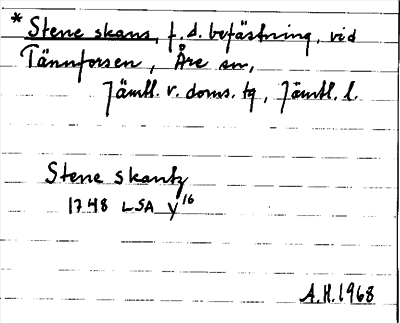 * Stene skans, f.d. befästning, vid
Tännforsen, Åre sn,
Jämtl. v. doms. tg, Jämtl. l.
Stene skantz
1748 LSA Y16
A.H. 1968